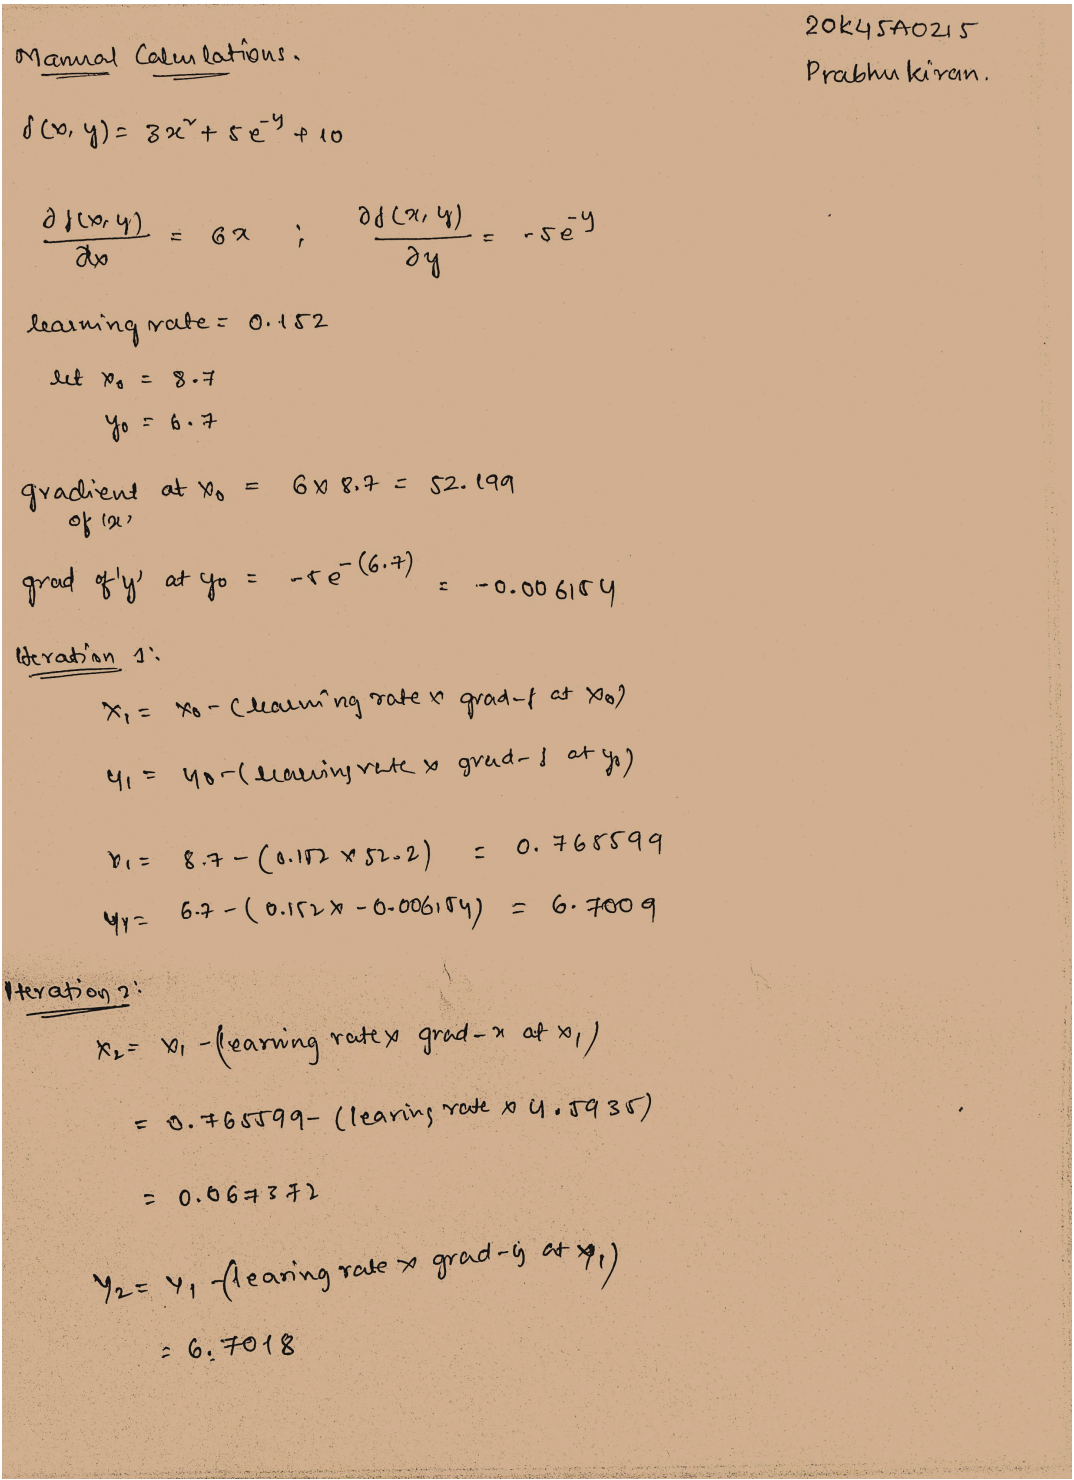 20K45A0215
Manual Calculations.
Prabhu kiran.
f(x, y) = 3x² + 5e^-y + 10
∂f(x, y)/∂x = 6x ; ∂f(x, y)/∂y = -5e^-y
learning rate = 0.152
let x₀ = 8.7
y₀ = 6.7
gradient at x₀ = 6 x 8.7 = 52.199
of 'x'
grad of 'y' at y₀ = -5e^-(6.7) = -0.006154
Iteration 1:
x₁ = x₀ - (learning rate x grad-f at x₀)
y₁ = y₀ - (learning rate x grad-f at y₀)
x₁ = 8.7 - (0.152 x 52.2) = 0.765599
y₁ = 6.7 - (0.152 x -0.006154) = 6.7009
Iteration 2:
x₂ = x₁ - (learning rate x grad-x at x₁)
= 0.765599 - (learing rate x 4.5935)
= 0.067372
y₂ = y₁ - (learing rate x grad-y at y₁)
= 6.7018